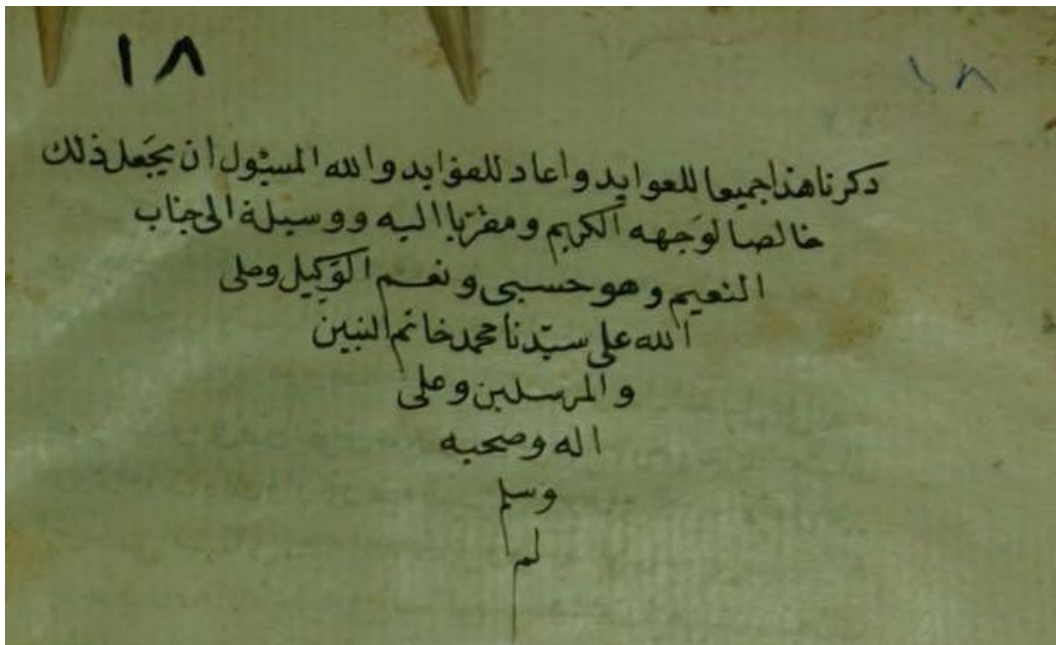 ١٨
١٨
ذكرنا هذا جميعا للعوايد واعاد للفوايد والله المسئول ان يجَعل ذلك
خالصا لوَجهه الكريم ومقرّبا اليه ووسيلة الى جناب
النعيم وهو حسبى ونعم الوَكيل وصلى
الله على سيّدنا محمد خاتم النبين
والمرسلين وعلى
اله وصحبه
وسلم